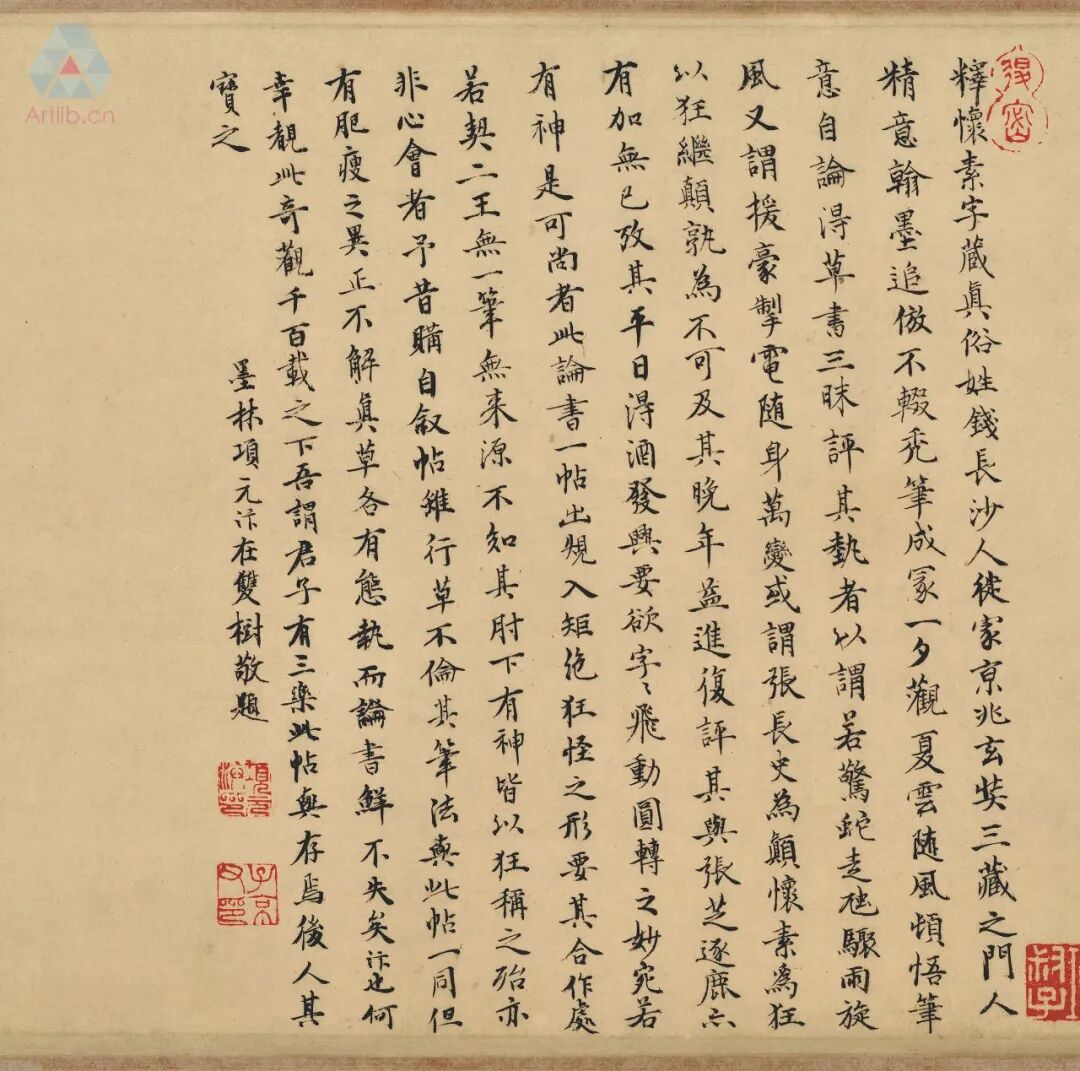 釋懷素字藏真俗姓錢長沙人徙家京兆玄奘三藏之門人
精意翰墨追倣不輟禿筆成冢一夕觀夏雲隨風頓悟筆
意自論淂草書三昧評其埶者以謂若驚蛇走虺驟雨旋
風又謂援豪掣電随身萬變或謂張長史為顛懷素為狂
以狂繼顛孰為不可及其晚年益進復評其與張芝逐鹿亦
有加無已攷其平日淂酒發興要欲字〻飛動圓轉之妙宛若
有神是可尚者此論書一帖出規入矩絶狂怪之形要其合作處
若契二王無一筆無来源不知其肘下有神皆以狂稱之殆亦
非心會者予昔購自叙帖雖行草不倫其筆法與此帖一同但
有肥瘦之異正不解真草各有態執而論書鮮不失矣汴也何
幸覩此奇觀千百載之下吾謂君子有三樂此帖與存焉後人其
寶之
墨林項元汴在雙樹敬題
項元汴印
子京父印
Artlib.cn